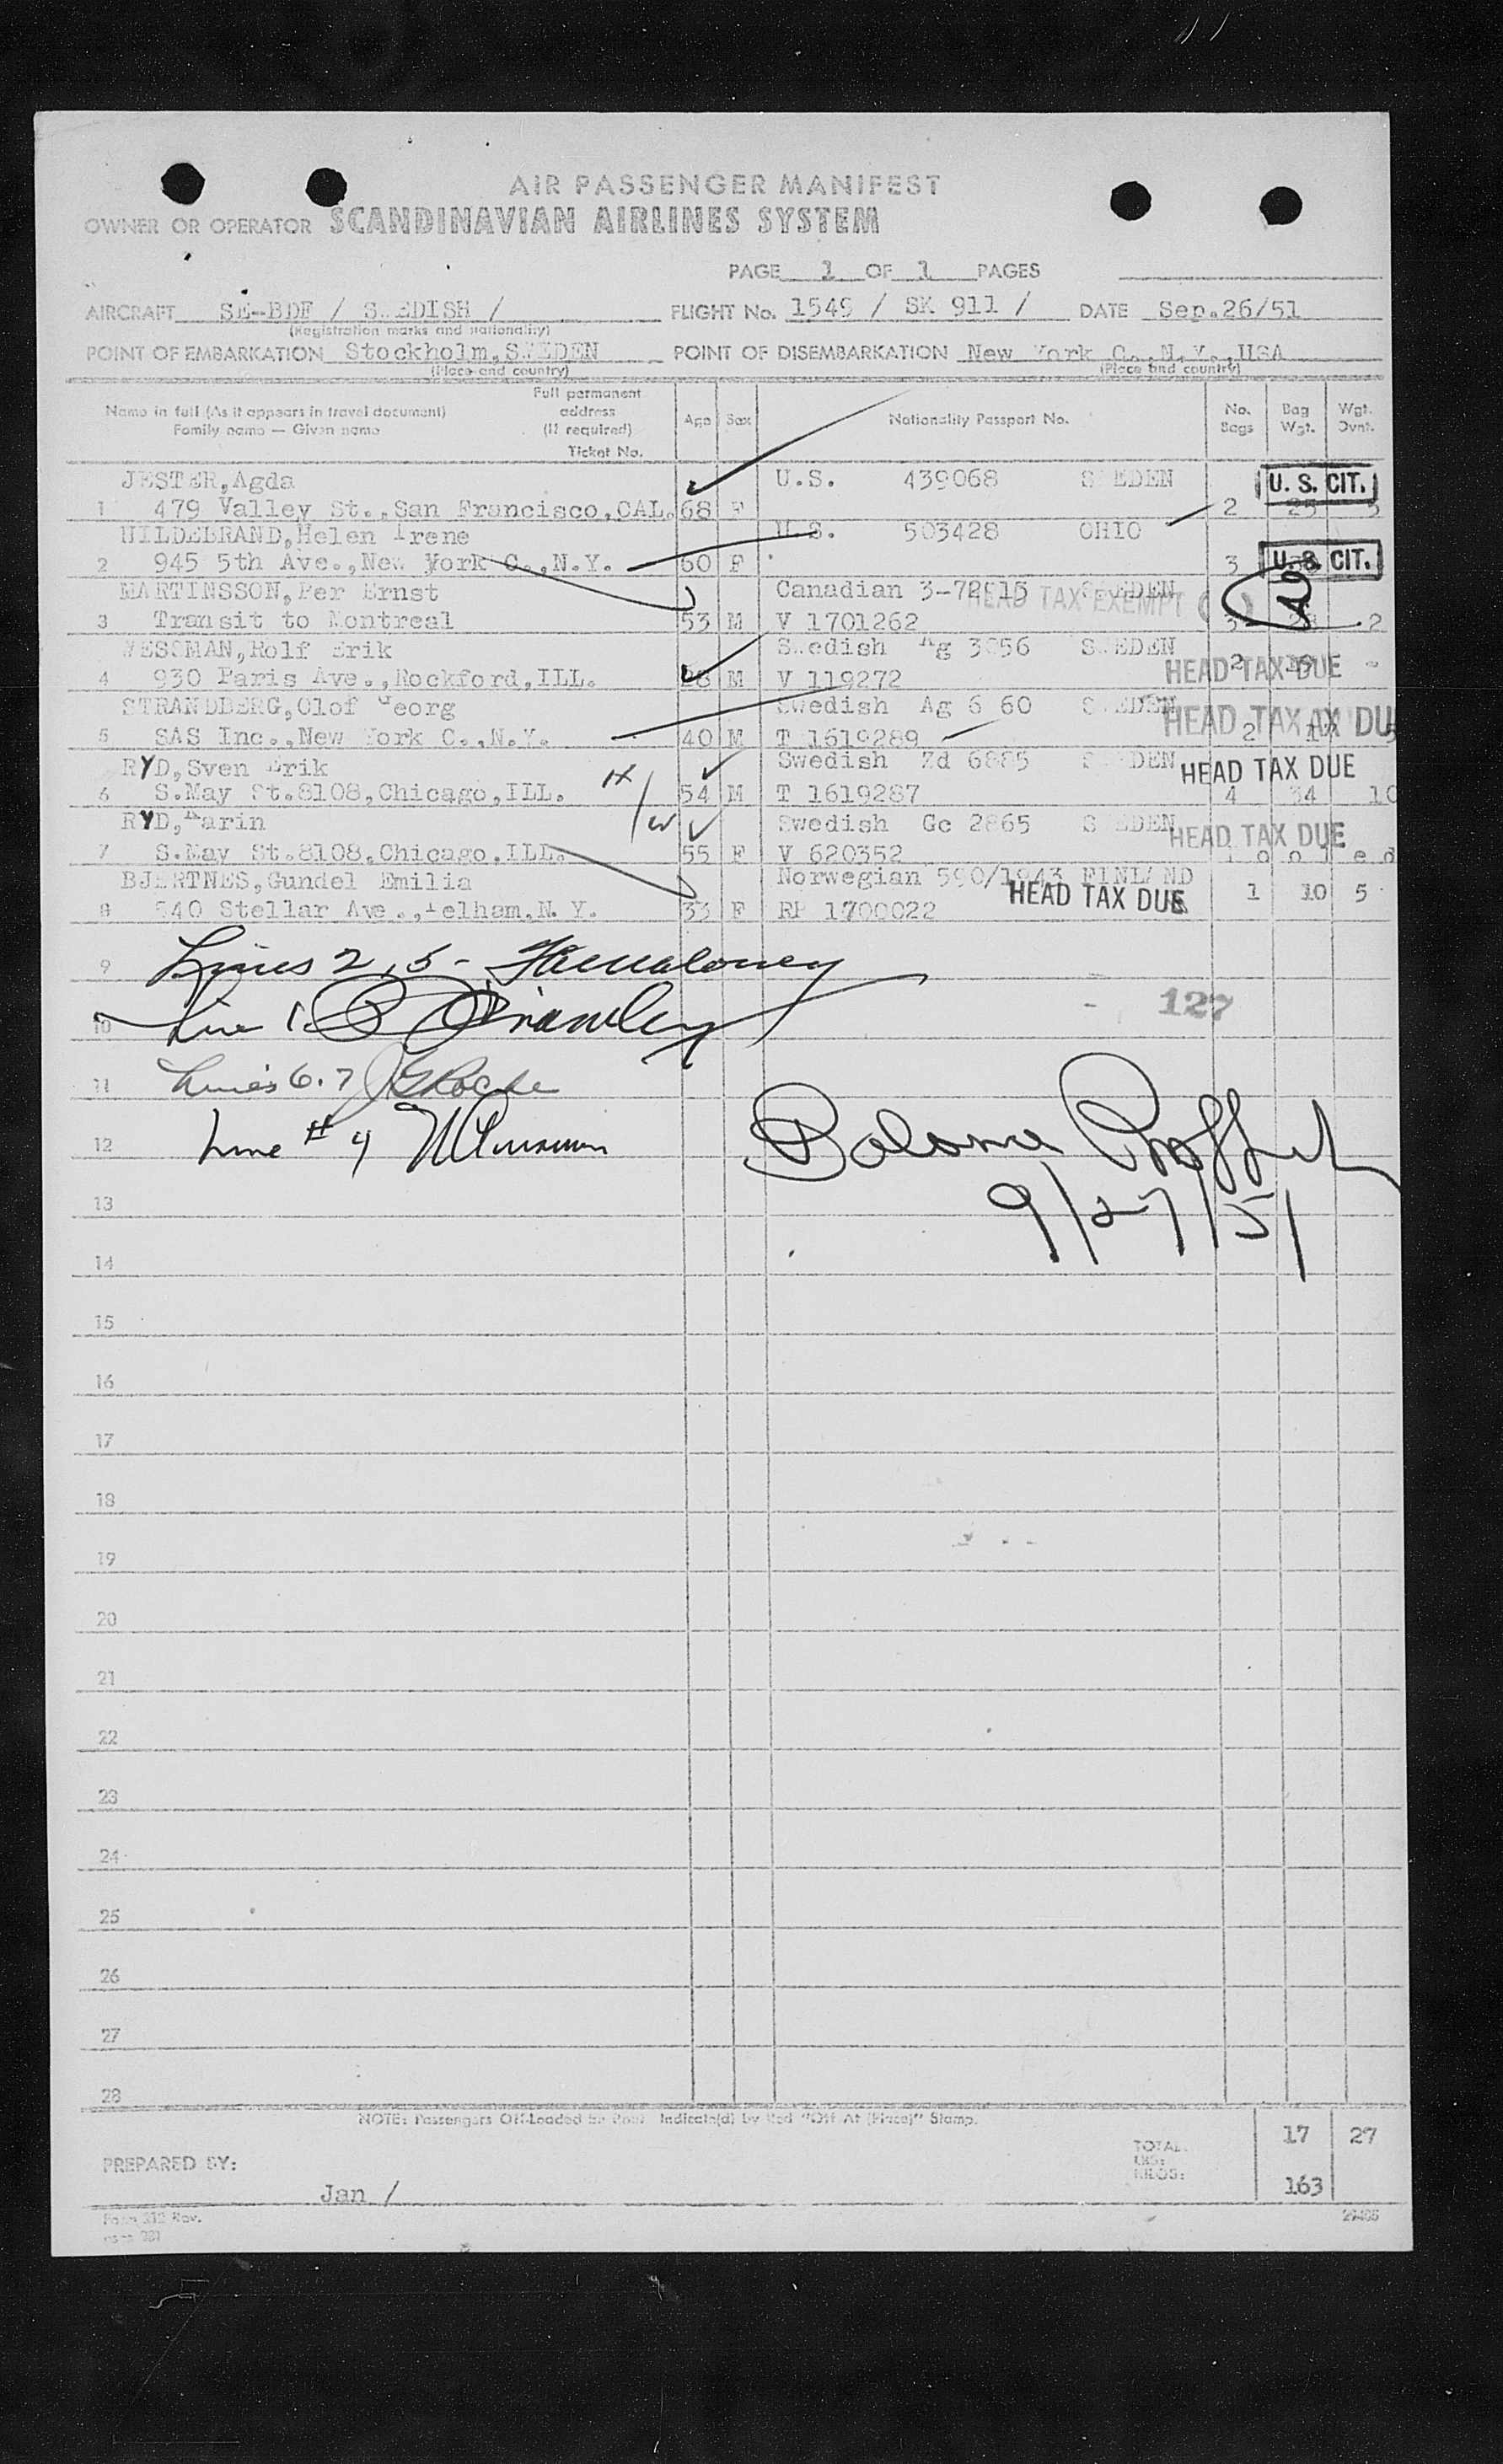 AIR PASSENGER MANIFEST
OWNER OR OPERATOR SCANDINAVIAN AIRLINES SYSTEM
PAGE 1 OF 1 PAGES
AIRCRAFT SE-BDF / SWEDISH / FLIGHT No. 1549 / SK 911 / DATE Sep.26/51
(Registration marks and nationality)
POINT OF EMBARKATION Stockholm,SWEDEN POINT OF DISEMBARKATION New York C.,N.Y.,USA
(Place and country) (Place and country)
Name in full (As it appears in travel document) Family name — Given name Full permanent address (If required) Ticket No. Age Sex Nationality Passport No. No. Bags Bag Wgt. Wgt. Ovnt.
JESTER,Agda U.S. 439068 SWEDEN U. S. CIT.
1 479 Valley St.,San Francisco,CAL. 68 F 2 25 5
HILDEBRAND,Helen Irene U.S. 503428 OHIO
2 945 5th Ave.,New York C.,N.Y. 60 F 3 U. S. CIT.
MARTINSSON,Per Ernst Canadian 3-72915 SWEDEN HEAD TAX EXEMPT
3 Transit to Montreal 53 M V 1701262 3 28 2
WESSMAN,Rolf Erik Swedish Ag 3056 SWEDEN
4 930 Paris Ave.,Rockford,ILL. 28 M V 119272 HEAD TAX DUE 2
STRANDBERG,Olof Georg Swedish Ag 6 60 SWEDEN HEAD TAX DU
5 SAS Inc.,New York C.,N.Y. 40 M T 1619289 2
RYD,Sven Erik Swedish Zd 6885 SWEDEN HEAD TAX DUE
6 S.May St.8108,Chicago,ILL. 54 M T 1619287 4 34 10
RYD,Karin Swedish Gc 2865 SWEDEN HEAD TAX DUE
7 S.May St.8108,Chicago,ILL. 55 F V 620352 P o o l e d
BJERTNES,Gundel Emilia Norwegian 590/1943 FINLAND
8 540 Stellar Ave.,Pelham,N.Y. 33 F RP 1700022 HEAD TAX DUE 1 10 5
9 Lines 2,5 -
10 Line 1 - 127
11 Lines 6.7 J G Roche
12 Line # 4 Balance Proffitt
9/27/51
13
14
15
16
17
18
19
20
21
22
23
24
25
26
27
28
NOTE: Passengers Off-Loaded En Route Indicate(d) by Red "Off At (Place)" Stamp.
TOTAL 17 27
PREPARED BY: LBS:
KILOS: 163
Jan /
Form 312 Rev. 29485